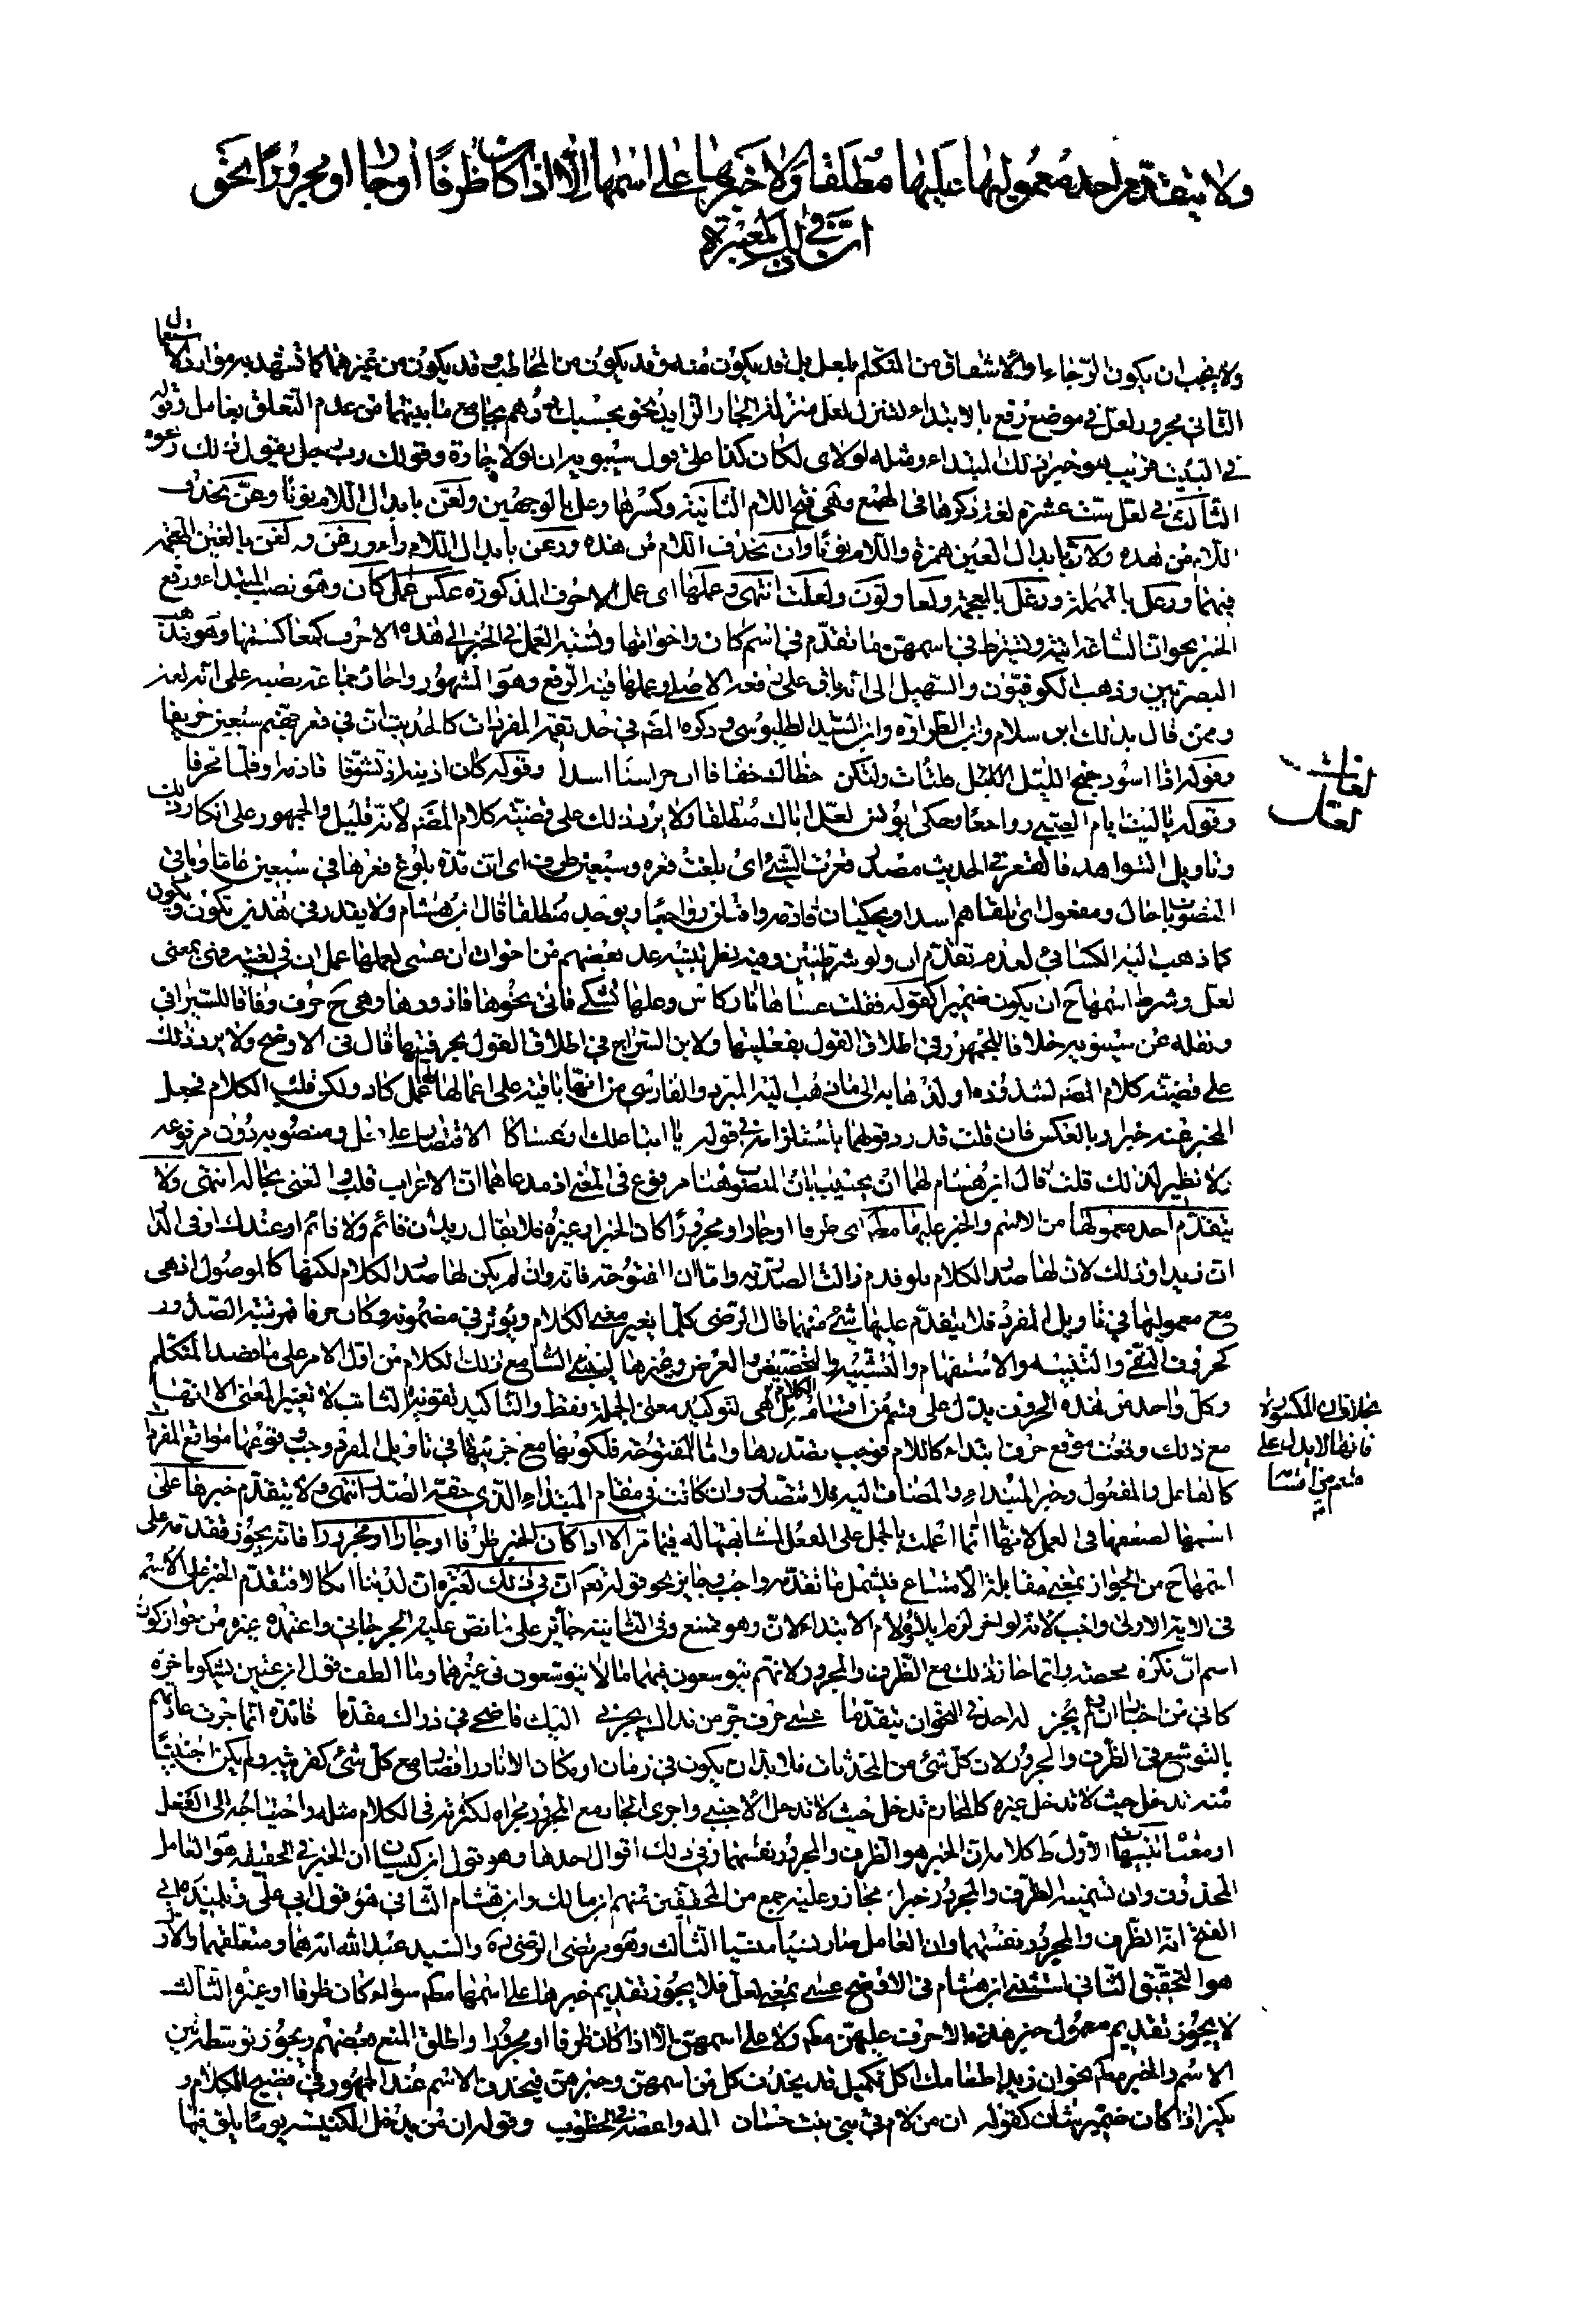 ولا يتقدّم احد معموليها عليها مطلقا ولا خبرها على اسمها الّا اذا كان ظرفًا او جارا او مجرورًا نحو
انّ في ذلك لعبرة
ولا يجب ان يكون الرّجاء والاشفاق من المتكلم بلعل بل قد يكون منه وقد يكون من المخاطب وقد يكون من غيرهما كما تشهد به موارد الاستعمال
الثاني مجرور لعل في موضع رفع بالابتداء لتنزل لعل منزلة الجار الزايد نحو بحسبك درهم بجامع ما بينهما من عدم التعلق بعامل وقوله
في البيت قريب هو خبر ذلك المبتداء ومثله لولاى لكان كذا على قول سيبويه ان لولا جارة وقولك رب رجل يقول ذلك ونحوه
الثالث في لعل ستّ عشرة لغة ذكرها في الهمع وهي فتح اللام الثانية وكسرها وعل بالوجهين ولعن بابدال اللام نونًا وعنّ بحذف
اللام من هذه ولأنّ بابدال العين همزة واللام نونًا وان بحذف اللام من هذه ورعن بابدال اللام راء ورغن ولغن بالغين المعجمة
فيهما ورعل بالمهملة ورغل بالمعجمة ولعا ولوت ولعلت انتهى وعملها اى عمل الاحرف المذكورة عكس عمل كان وهو نصب المبتداء ورفع
الخبر نحو انّ الساعة اتية ويشترط في اسمهن ما تقدّم في اسم كان واخواتها ونسبة العمل في الخبر الى هذه الاحرف كنعا كسفها وهو مذهب
البصريين وذهب الكوفيّون والسهيلى الى انه باق على رفعه الاصلى وعملها فيه الرّفع وهو المشهور واجاز جماعة نصبه على انه لغة
وممن قال بذلك ابن سلام وابن الطراوة وابن السّيد البطليوسى وذكره المصّ في حدتقة المفردات كالحديث ان في قعر جهنم سبعين خريفا
وقوله اذا اسود جنح الليل فلتأت ولتكن خطاك خفافا ان حراسنا اسدا وقوله كان اذنيه اذ تشوّقا قادمة او قلما محرفا
وقوله يا ليت ايام الصبى رواجعا وحكى يونس لعلّ اباك منطلقا ولا يرد ذلك على قضيّة كلام المصّ لانّه قليل والجمهور على انكار ذلك
وتاويل الشواهد فالقعر في الحديث مصدر قعرت الشّئ اى بلغت قعره وسبعين ظرف اى انّ مدّة بلوغ قعرها في سبعين عاما وباقي
المنصوب حال ومفعول اى تلقاهم اسدا ويحكيان قادمة وا قبلن رواجعا ويوجد منطلقا قال ابن هشام ولا يقدر في هذين تكون ويكون
كما ذهب اليه الكسائي لعدم تقدّم ان ولو شرطيتين وفيه نظر تنبيه عد بعضهم من اخوات ان عسى لعملها عمل ان في لغية وهي بمعنى
لعل وشرط اسمها ح ان يكون ضميرا كقوله فقلت عساها نار كاس وعلها تشكى فاتى نحوها فازورها وهي ح حرف وفاقا للسّيرافي
ونقله عن سيبويه خلافا للجمهور في اطلاق القول بفعليتها ولابن السّراج في اطلاق القول بحرفيتها قال في الاوضح ولا يرد ذلك
على قضيّة كلام المصّ لشذوذه او لذهابه الى ما ذهب اليه المبرد والفارسى من انّها باقية على اعمالها عمل كاد ولكن قلب الكلام فجعل
المخبر عنه خبرا وبالعكس فان قلت قد رد قولهما باستلزامه في قوله يا ابتا علك او عساكا الاقتصار على فعل ومنصوبه دون مرفوعه
ولا نظير لذلك قلت قال ابن هشام لهما ان يجيبا بان المنصوب هنا مرفوع في المعنى اذ مدعاهما ان الاعراب قلب والمعنى بحاله انتهى ولا
يتقدّم احد معموليها من الاسم والخبر عليها مط اى ظرفا او جارا ومجرورًا كان الخبر او غيره فلا يقال زيد ان قائم ولا قائم او عندك او في الدار
ان زيدا وذلك لان لها صدر الكلام فلو قدم زالت الصدريه وامّا ان المفتوحة فانه وان لم يكن لها صدر الكلام لكنها كالموصول اذ هي
مع معموليها في تاويل المفرد فلا يتقدّم عليها شئ منهما قال الرّضى كلّما يغير معنى الكلام ويؤثر في مضمونه وكان حرفا فمرتبته الصّدر
كحروف النّفي والتنبيه والاستفهام والتشبيه والتحضيض والعرض وغيرها ليبنى السّامع ذلك الكلام من اوّل الامر على ما قصد المتكلم
وكل واحد من هذه الحروف يدل على قسم من اقسام الكلام بل هي لتوكيد معنى الجملة فقط والتاكيد تقوية الثابت لا تغيير المعنى الا انها
مع ذلك وقعت موقع حرف ابتداء كاللام فوجب تصدرها وامّا المفتوحة فلكونها مع جزئيها في تاويل المفرد وجب وقوعها مواقع المفردات
كالفاعل والمفعول وخبر المبتداء والمضاف اليه فلا تتصدّر وان كانت في مقام المبتداء الّذى حقّه الصّدر انتهى ولا يتقدّم خبرها على
اسمها لضعفها في العمل لانها انّما اعملت بالحمل على الفعل لمشابهتها له فيما مرّ الا اذا كان الخبر ظرفا او جارا ومجرورا فانه يجوز فقد تقدمه على
اسمها ح من الجواز بمعنى مقابلة الامتناع فيشمل ما تقدّمه واجب وجايز نحو قوله تعم انّ في ذلك لعبرة ان لدينا انكالا فتقدّم الخبر على الاسم
في الاية الاولى واجب لانه لو اخر لزم ايلاء لام الابتداء لانّ وهو ممتنع وفي الثانية جائز على ما نصّ عليه الجرجاني واعتمده غيره من جواز كون
اسم انّ نكرة محضة وانّما جاز ذلك مع الظّرف والمجرور لانهم يتوسعون فيهما ما لا يتوسّعون في غيرهما وما الطف قول ابن عنين يشكو تاخره
كاني من اخبار انّ ولم يجز له احد في النحو ان يتقدّما عسى حرف جر من نداك يجرني اليك فاضحى في ذراك مقدّما فائدة انّما جرت عادتهم
بالتوسّع في الظّرف والمجرور لان كلّ شئ من المحدثات فلا بدّ ان يكون في زمان او مكان الا نادرا فصار مع كلّ شئ كقريبه ولم يكن اجنبيّا
منه فدخل حيث لا يدخل غيره كالمحارم تدخل حيث لا تدخل الاجنبي واجرى الجار مع المجرور مجراه لكثرته في الكلام مثله واحتياجه الى الفعل
او معناه تنبيهات الاوّل ظ كلامه ان الخبر هو الظّرف والمجرور نفسهما وفي ذلك اقوال احدها وهو قول ابن كيسان ان الخبر في الحقيقه هو العامل
المحذوف وان تسمية الظّرف والمجرور خبرا مجاز وعليه جمع من المحققين منهم ابن مالك وابن هشام الثّاني هو قول ابي علّى وتلميذه ابي
الفتح انّه الظّرف والمجرور نفسهما وان العامل صار نسيا منسيا الثّالث وهو مرتضى الرّضى ره والسّيد عبد الله انه هما ومتعلقهما والاوّل
هو التحقيق الثّاني استثنى ابن هشام في الاوضح عسى بمعنى لعل فلا يجوز تقديم خبرها على اسمها مط سواء كان ظرفا او غيره الثالث
لا يجوز تقديم معمول خبر هذه الاحرف عليهنّ مط ولا على اسمهنّ الّا اذا كان ظرفا او مجرورا واطلق المنع بعضهم ويجوز توسّطه بين
الاسم والخبر مط نحو ان زيدا طعامك اكل تكميل قد يحذف كل من اسمهنّ وخبرهن فيحذف الاسم عند الجمهور في فصيح الكلام و
يكثر اذا كان ضمير شان كقوله ان من لام في بني بنت حسان المه واعصه في الخطوب وقوله ان من يدخل الكنيسة يوما يلق فيها
لغات
لعل
بخلاف ان المكسورة
فانها لا تدل على
قسم من اقسا